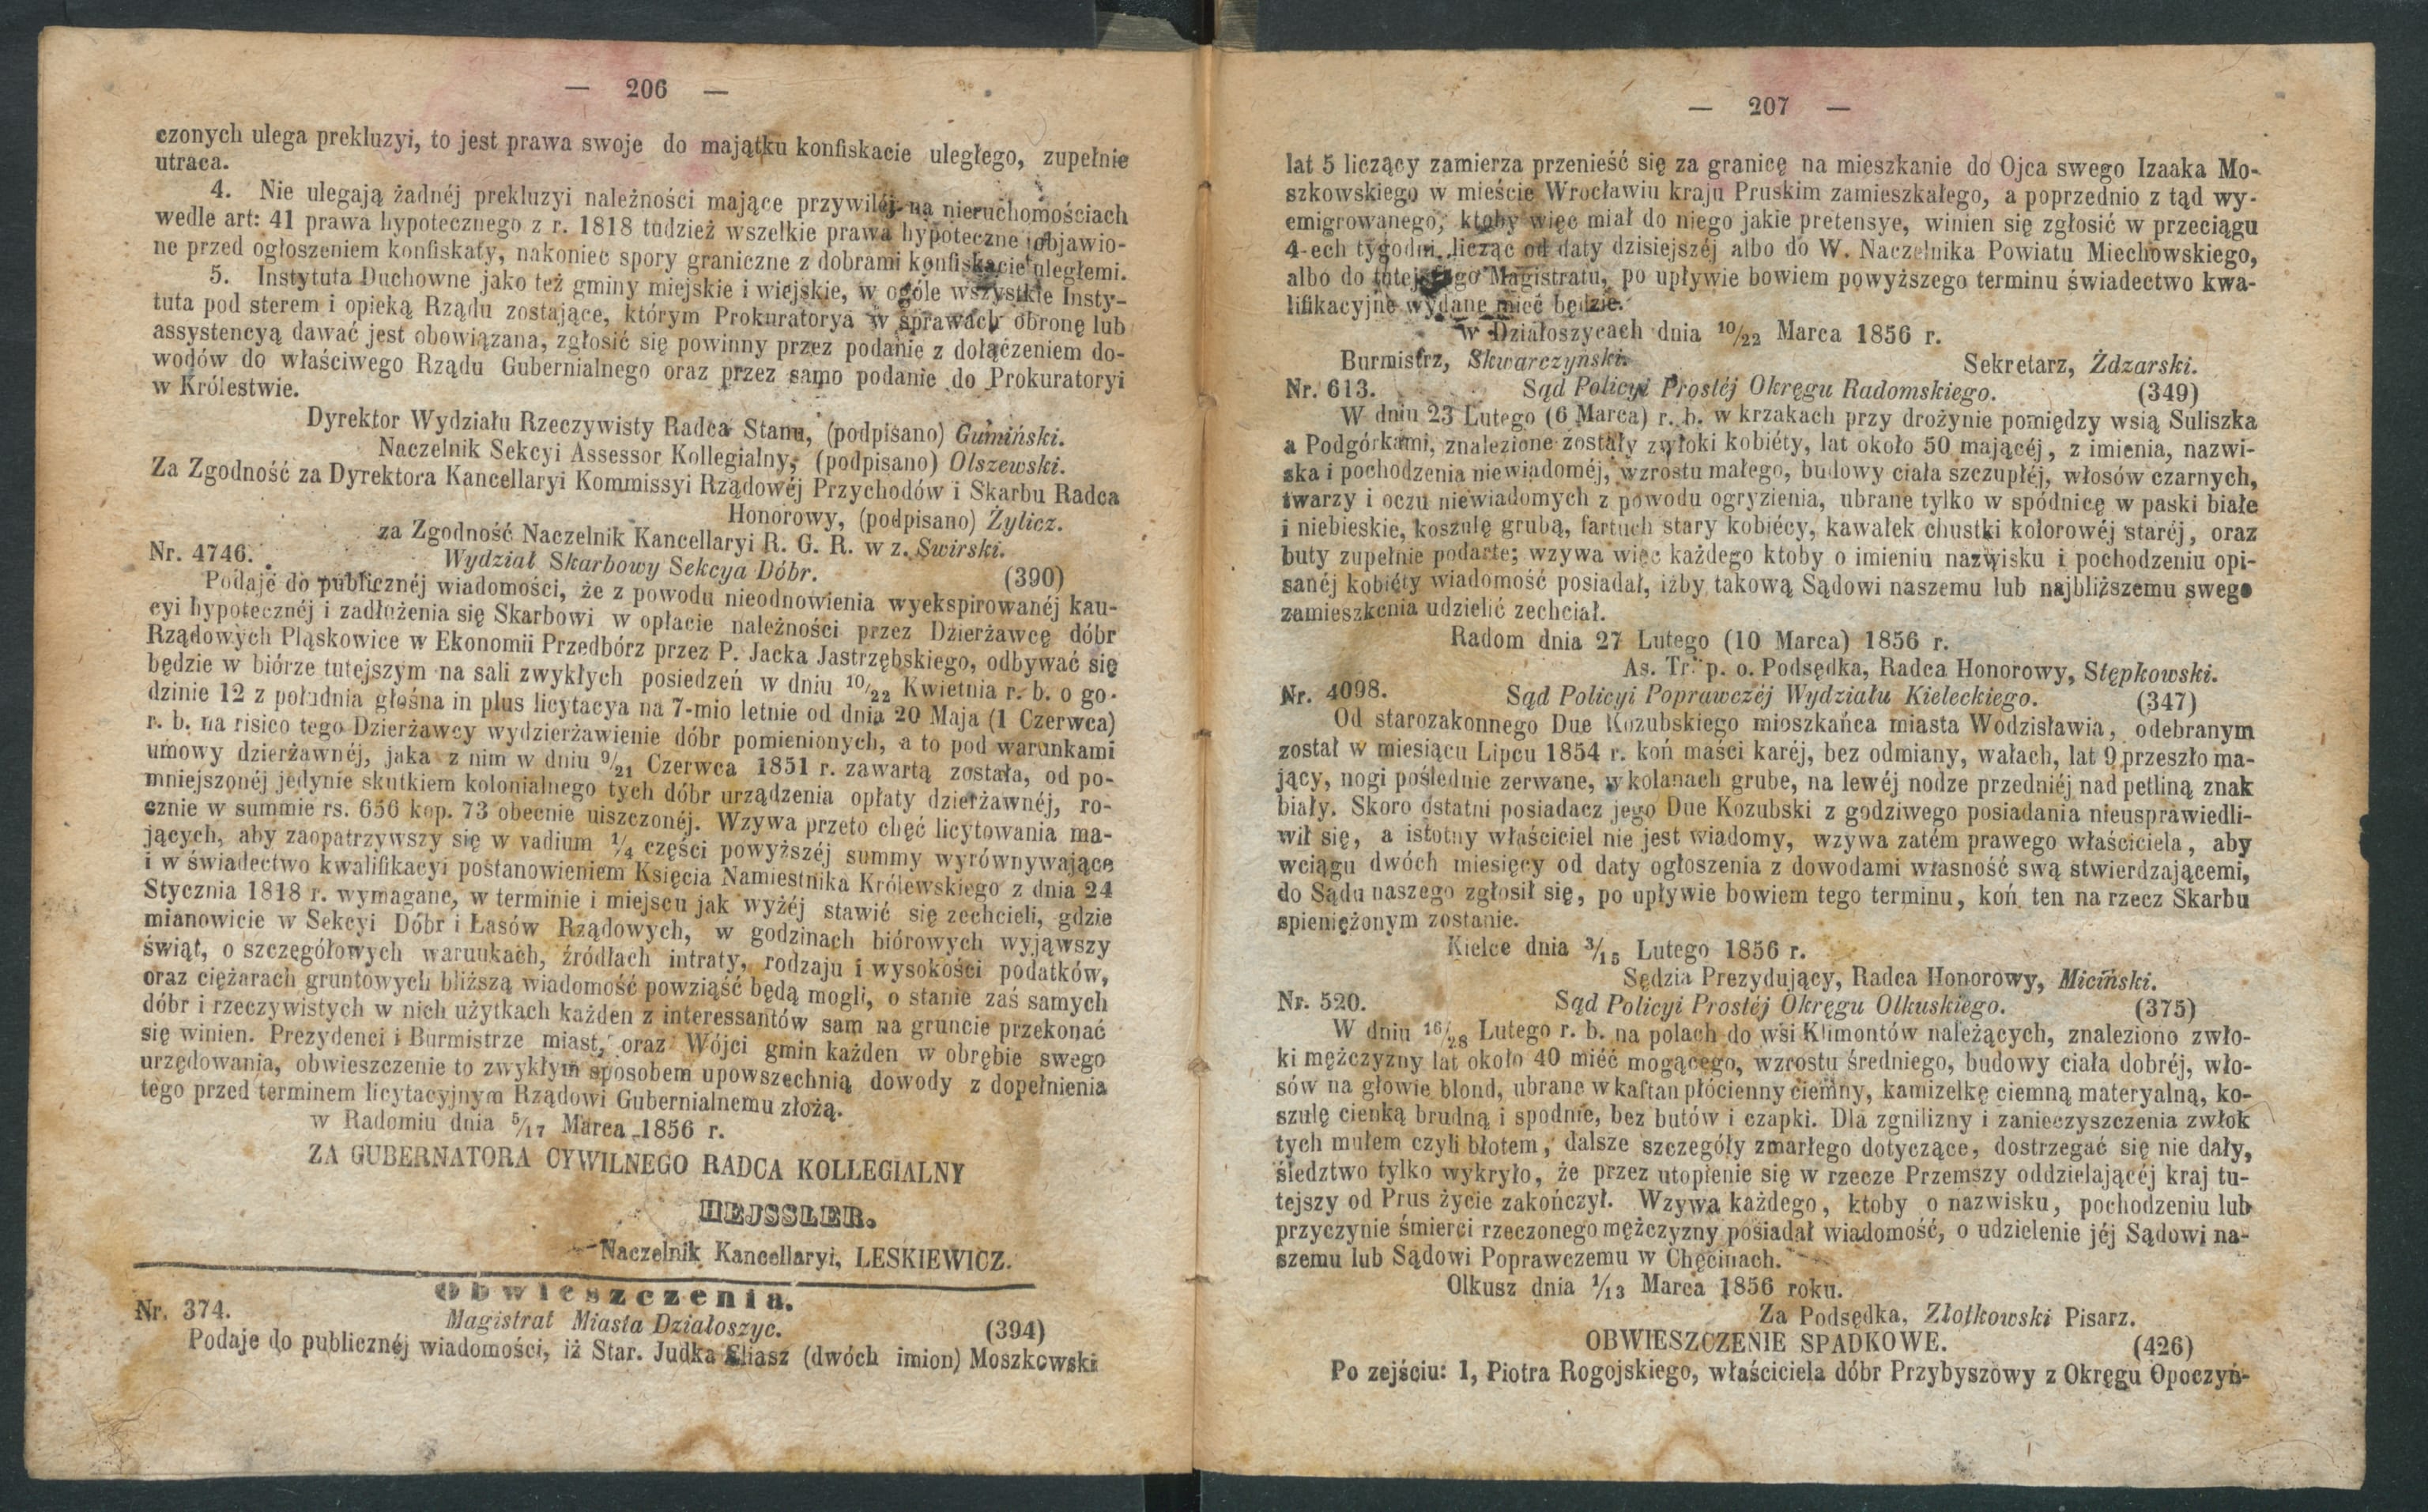 — 206 —
czonych ulega prekluzyi, to jest prawa swoje do majątku konfiskacie uległego, zupełnie
utraca.
4. Nie ulegają żadnéj prekluzyi należności mające przywiléj na nieruchomościach
wedle art: 41 prawa hypotecznego z r. 1818 tudzież wszelkie prawa hypoteczne objawio-
ne przed ogłoszeniem konfiskaty, nakoniec spory graniczne z dobrami konfiskacie uległemi.
5. Instytuta Duchowne jako też gminy miejskie i wiejskie, w ogóle wszystkie Insty-
tuta pod sterem i opieką Rządu zostające, którym Prokuratorya w sprawach obronę lub
assystencyą dawać jest obowiązana, zgłosić się powinny przez podanie z dołączeniem do-
wodów do właściwego Rządu Gubernialnego oraz przez samo podanie do Prokuratoryi
w Królestwie.
Dyrektor Wydziału Rzeczywisty Radca Stanu, (podpisano) Gumiński.
Naczelnik Sekcyi Assessor Kollegialny, (podpisano) Olszewski.
Za Zgodność za Dyrektora Kancellaryi Kommissyi Rządowéj Przychodów i Skarbu Radca
Honorowy, (podpisano) Żylicz.
za Zgodność Naczelnik Kancellaryi R. G. R. w z. Swirski.
Nr. 4746. Wydział Skarbowy Sekcya Dóbr. (390)
Podaje do publicznéj wiadomości, że z powodu nieodnowienia wyekspirowanéj kau-
cyi hypotecznéj i zadłużenia się Skarbowi w opłacie należności przez Dzierżawcę dóbr
Rządowych Pląskowice w Ekonomii Przedbórz przez P. Jacka Jastrzębskiego, odbywać się
będzie w biórze tutejszym na sali zwykłych posiedzeń w dniu 10/22 Kwietnia r. b. o go-
dzinie 12 z południa głośna in plus licytacya na 7-mio letnie od dnia 20 Maja (1 Czerwca)
r. b. na risico tego Dzierżawcy wydzierżawienie dóbr pomienionych, a to pod warunkami
umowy dzierżawnéj, jaka z nim w dniu 9/21 Czerwca 1851 r. zawartą została, od po-
mniejszonéj jedynie skutkiem kolonialnego tych dóbr urządzenia opłaty dzierżawnéj, ro-
cznie w summie rs. 656 kop. 73 obecnie uiszczonéj. Wzywa przeto chęć licytowania ma-
jących, aby zaopatrzywszy się w vadium 1/4 części powyższéj summy wyrównywające
i w świadectwo kwalifikacyi postanowieniem Księcia Namiestnika Królewskiego z dnia 24
Stycznia 1818 r. wymagane, w terminie i miejscu jak wyżéj stawić się zechcieli, gdzie
mianowicie w Sekcyi Dóbr i Lasów Rządowych, w godzinach biórowych wyjąwszy
świąt, o szczegółowych warunkach, źródłach intraty, rodzaju i wysokości podatków,
oraz ciężarach gruntowych bliższą wiadomość powziąść będą mogli, o stanie zaś samych
dóbr i rzeczywistych w nich użytkach każden z interessantów sam na gruncie przekonać
się winien. Prezydenci i Burmistrze miast, oraz Wójci gmin każden w obrębie swego
urzędowania, obwieszczenie to zwykłym sposobem upowszechnią dowody z dopełnienia
tego przed terminem licytacyjnym Rządowi Gubernialnemu złożą.
w Radomiu dnia 5/17 Marca 1856 r.
ZA GUBERNATORA CYWILNEGO RADCA KOLLEGIALNY
HEJSSLER.
Naczelnik Kancellaryi, LESKIEWICZ.
Obwieszczenia.
Nr. 374. Magistrat Miasta Działoszyc. (394)
Podaje do publicznéj wiadomości, iż Star. Judka Eliasz (dwóch imion) Moszkowski
— 207 —
lat 5 liczący zamierza przenieść się za granicę na mieszkanie do Ojca swego Izaaka Mo-
szkowskiego w mieście Wrocławiu kraju Pruskim zamieszkałego, a poprzednio z tąd wy-
emigrowanego, ktoby więc miał do niego jakie pretensye, winien się zgłosić w przeciągu
4-ech tygodni, licząc od daty dzisiejszéj albo do W. Naczelnika Powiatu Miechowskiego,
albo do tutejszego Magistratu, po upływie bowiem powyższego terminu świadectwo kwa-
lifikacyjne wydane mieć będzie.
w Działoszycach dnia 10/22 Marca 1856 r.
Burmistrz, Skwarczyński. Sekretarz, Żdzarski.
Nr. 613. Sąd Policyi Prostéj Okręgu Radomskiego. (349)
W dniu 23 Lutego (6 Marca) r. b. w krzakach przy drożynie pomiędzy wsią Suliszka
a Podgórkami, znalezione zostały zwłoki kobiéty, lat około 50 mającéj, z imienia, nazwi-
ska i pochodzenia niewiadoméj, wzrostu małego, budowy ciała szczupłéj, włosów czarnych,
twarzy i oczu niewiadomych z powodu ogryzienia, ubrane tylko w spódnicę w paski białe
i niebieskie, koszulę grubą, fartuch stary kobiécy, kawałek chustki kolorowéj staréj, oraz
buty zupełnie podarte; wzywa więc każdego ktoby o imieniu nazwisku i pochodzeniu opi-
sanéj kobiéty wiadomość posiadał, iżby takową Sądowi naszemu lub najbliższemu swego
zamieszkenia udzielić zechciał.
Radom dnia 27 Lutego (10 Marca) 1856 r.
As. Tr. p. o. Podsędka, Radca Honorowy, Stępkowski.
Nr. 4098. Sąd Policyi Poprawczéj Wydziału Kieleckiego. (347)
Od starozakonnego Due Kozubskiego mioszkańca miasta Wodzisławia, odebranym
został w miesiącu Lipcu 1854 r. koń maści karéj, bez odmiany, wałach, lat 9 przeszło ma-
jący, nogi poślednie zerwane, w kolanach grube, na lewéj nodze przedniéj nad petliną znak
biały. Skoro ostatni posiadacz jego Due Kozubski z godziwego posiadania nieusprawiedli-
wił się, a istotny właściciel nie jest wiadomy, wzywa zatém prawego właściciela, aby
wciągu dwóch miesięcy od daty ogłoszenia z dowodami własność swą stwierdzającemi,
do Sądu naszego zgłosił się, po upływie bowiem tego terminu, koń ten na rzecz Skarbu
spieniężonym zostanie.
Kielce dnia 3/15 Lutego 1856 r.
Sędzia Prezydujący, Radca Honorowy, Miciński.
Nr. 520. Sąd Policyi Prostéj Okręgu Olkuskiego. (375)
W dniu 16/28 Lutego r. b. na polach do wsi Klimontów należących, znaleziono zwło-
ki mężczyzny lat około 40 miéć mogącego, wzrostu średniego, budowy ciała dobréj, wło-
sów na głowie blond, ubrane w kaftan płócienny ciemny, kamizelkę ciemną materyalną, ko-
szulę cienką brudną i spodnie, bez butów i czapki. Dla zgnilizny i zanieczyszczenia zwłok
tych mułem czyli błotem, dalsze szczegóły zmarłego dotyczące, dostrzegać się nie dały,
śledztwo tylko wykryło, że przez utopienie się w rzecze Przemszy oddzielającéj kraj tu-
tejszy od Prus życie zakończył. Wzywa każdego, ktoby o nazwisku, pochodzeniu lub
przyczynie śmierci rzeczonego mężczyzny posiadał wiadomość, o udzielenie jéj Sądowi na-
szemu lub Sądowi Poprawczemu w Chęcinach.
Olkusz dnia 1/13 Marca 1856 roku.
Za Podsędka, Złotkowski Pisarz.
OBWIESZCZENIE SPADKOWE. (426)
Po zejściu: 1, Piotra Rogojskiego, właściciela dóbr Przybyszowy z Okręgu Opoczyń-